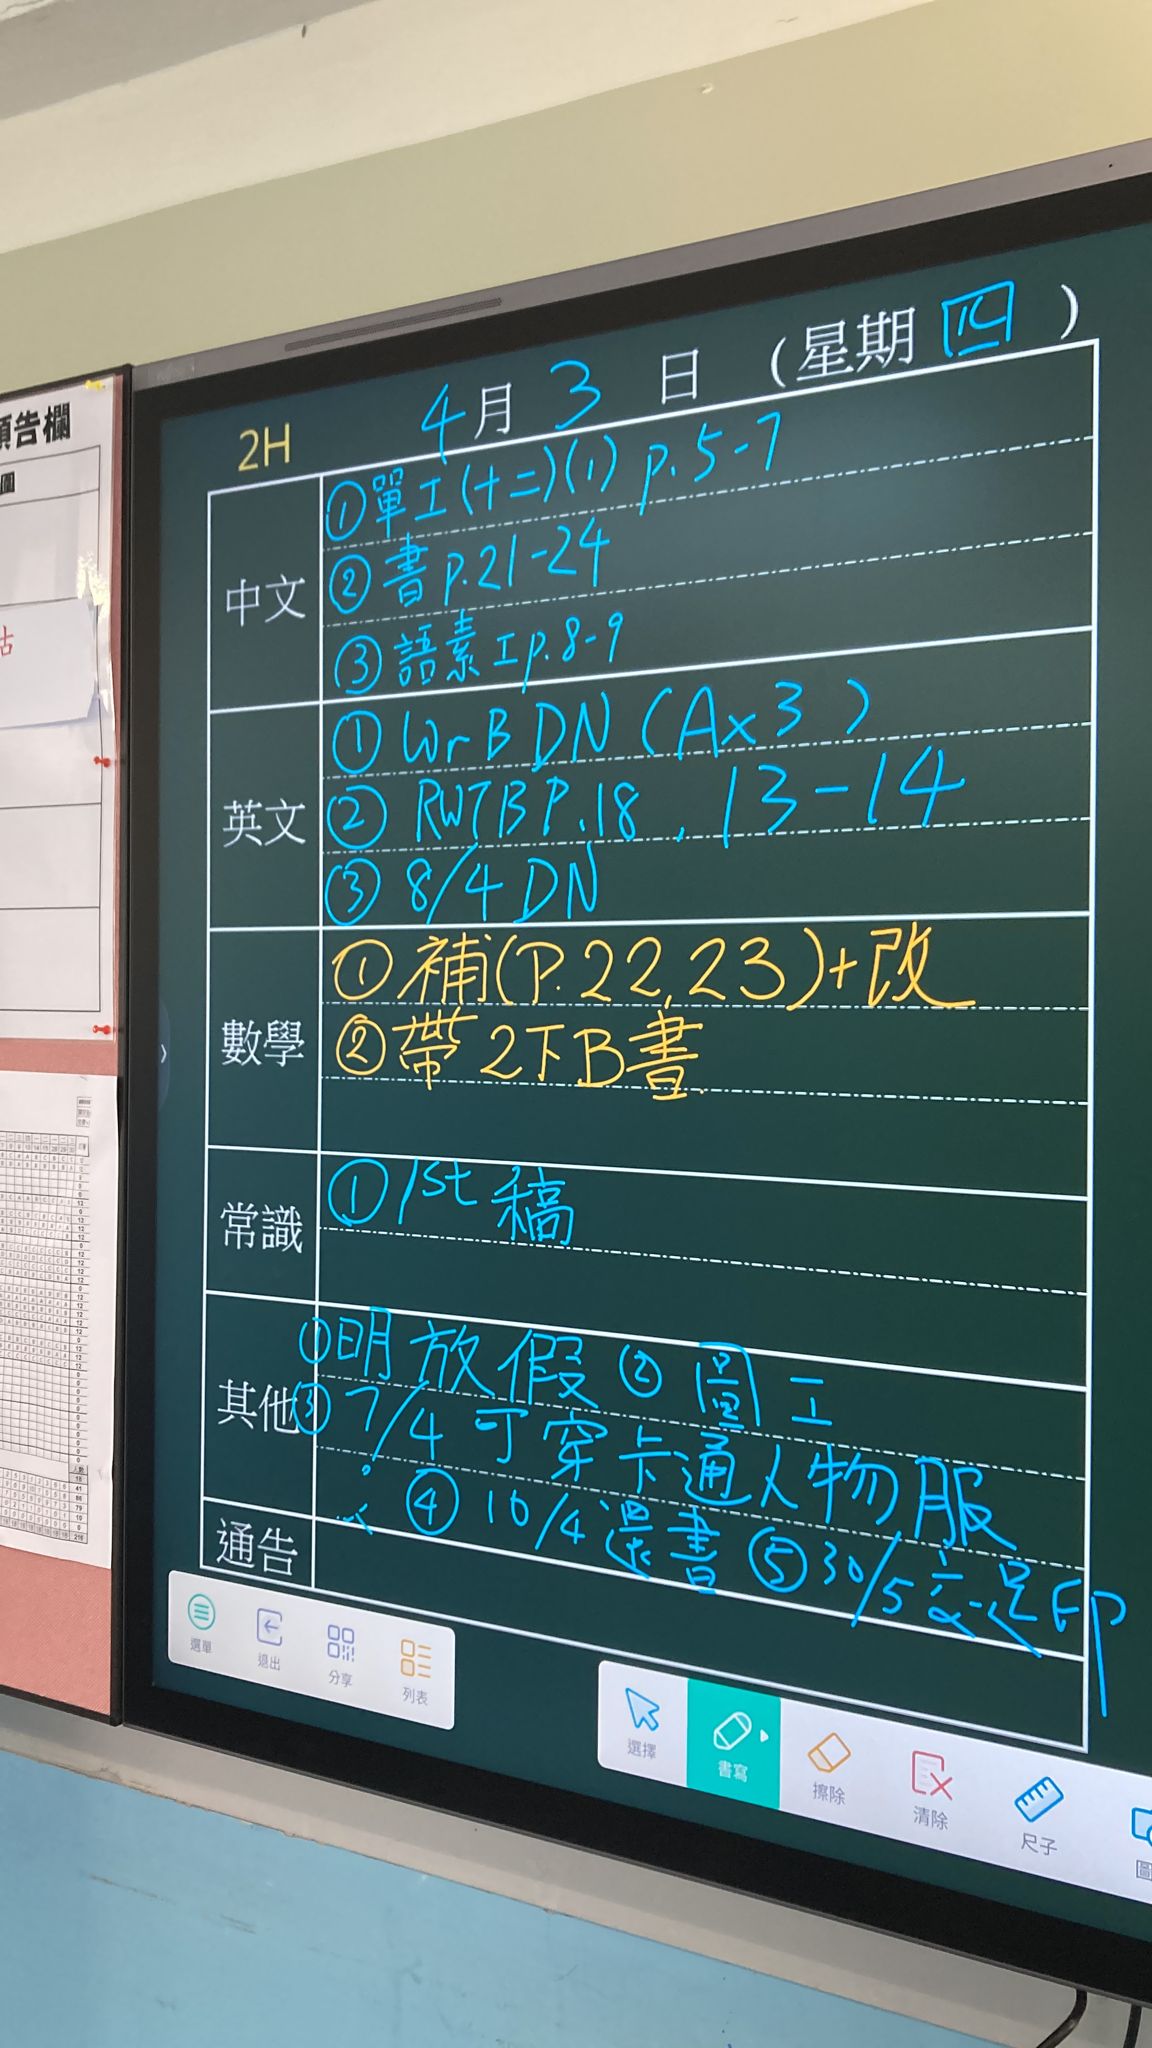 預告欄
2H 4月3日 (星期四)
中文
①單工(十二)(1) p.5-7
②書p.21-24
③語素工p.8-9
英文
① WrB DN (A×3)
② RWTB P.18, 13-14
③ 8/4 DN
數學
①補(P.22,23)+改
②帶2下B書
常識
①1st 稿
其他
①明放假 ②圖工
③7/4可穿卡通人物服
④ 10/4還書 ⑤30/5交足印
通告
選單 退出 分享 列表
選擇 書寫 擦除 清除 尺子